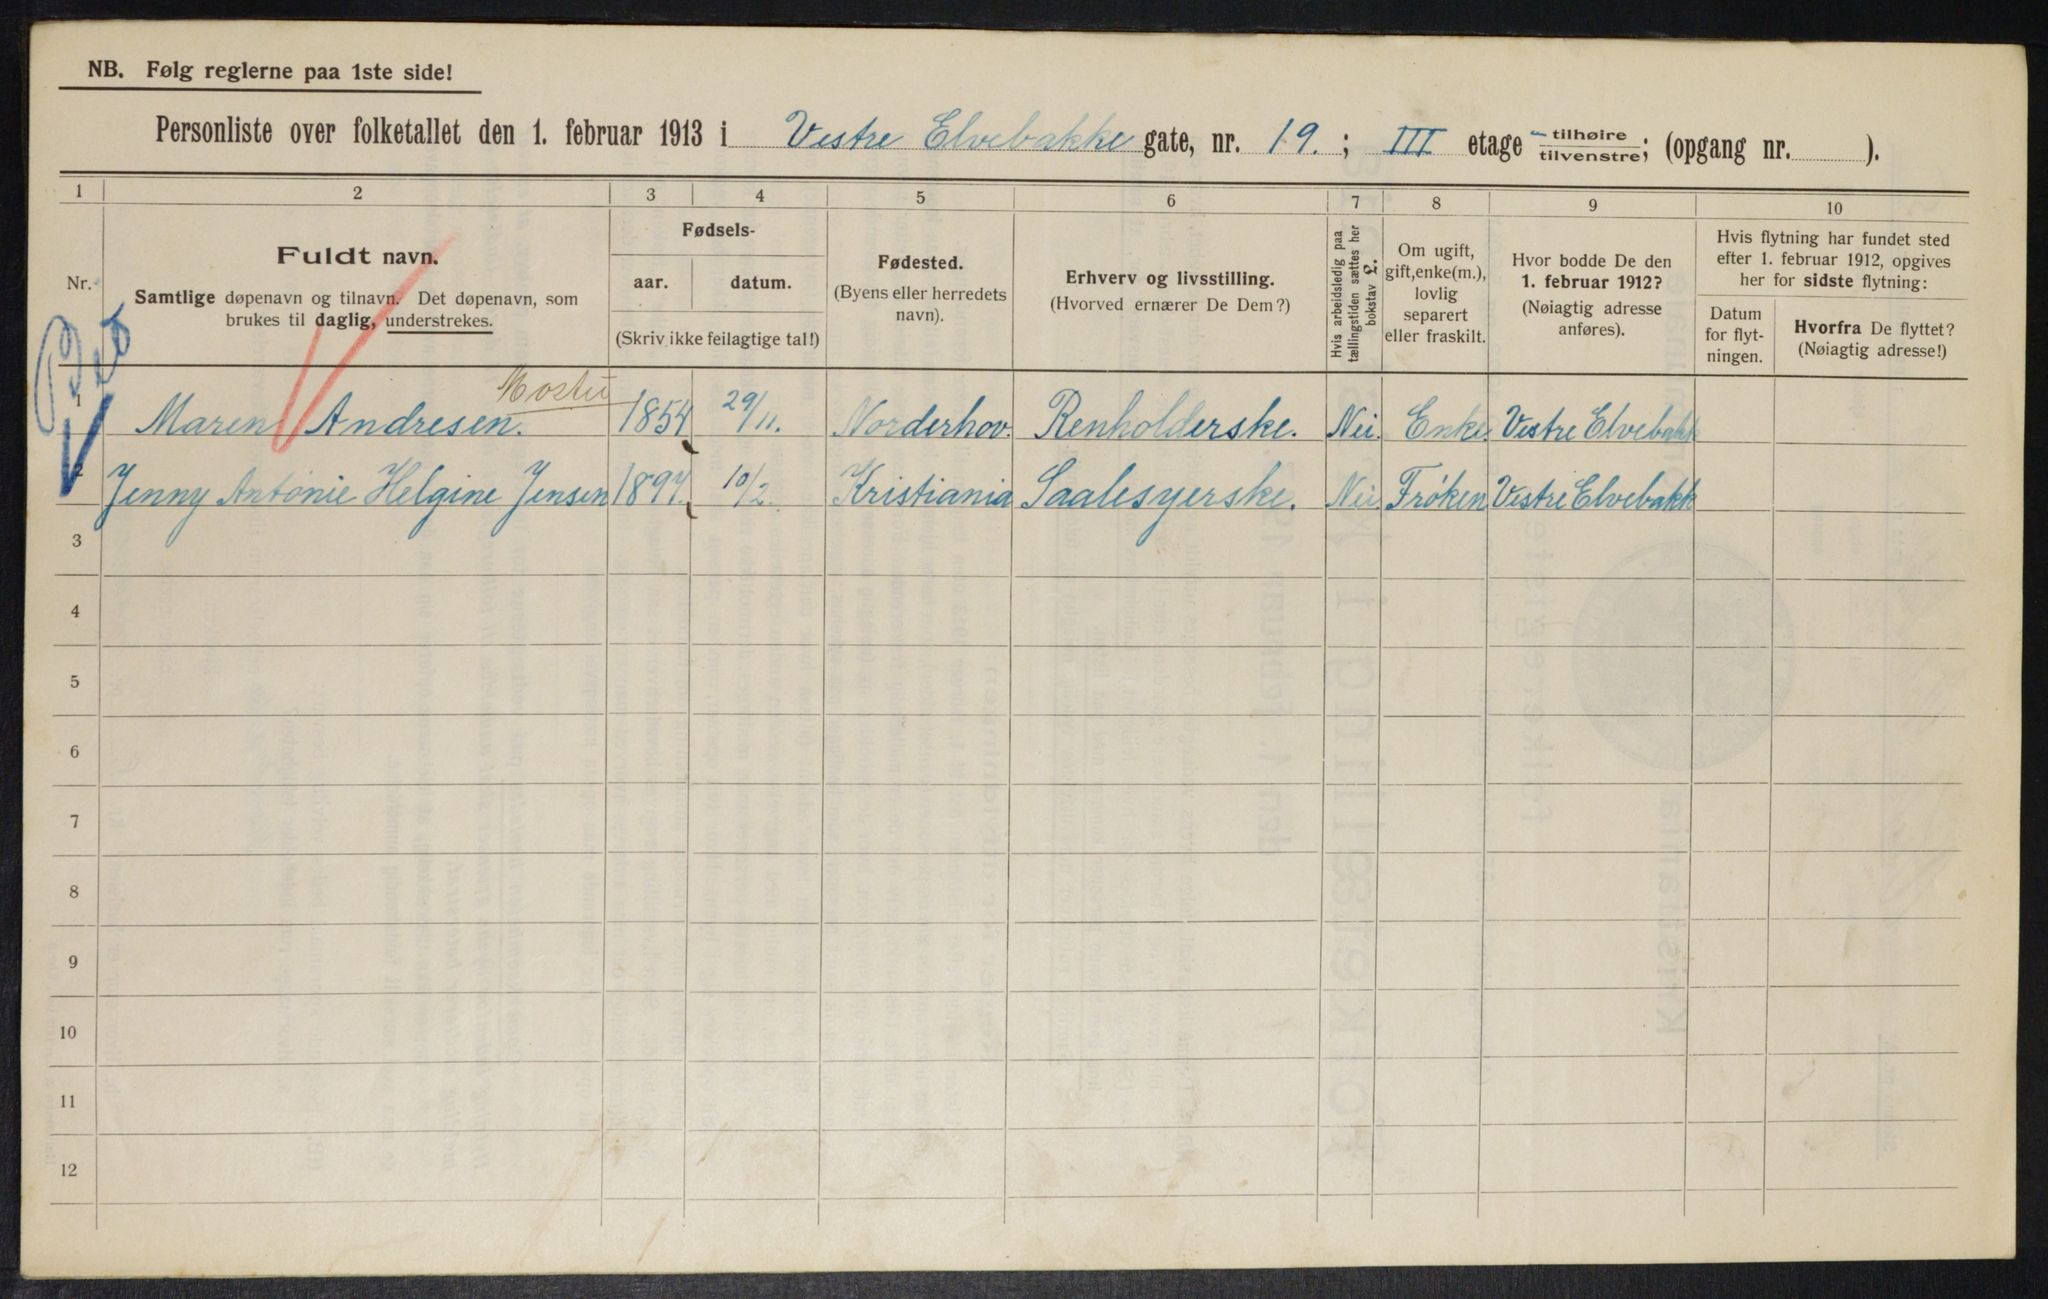 NB. Følg reglerne paa 1ste side!
Personliste over folketallet den 1. februar 1913 i Vestre Elvebakke gate, nr. 19. ; III etage tilhøire tilvenstre; (opgang nr. ).
1 2 3 4 5 6 7 8 9 10
Nr.
Fuldt navn.
Samtlige døpenavn og tilnavn. Det døpenavn, som
brukes til daglig, understrekes.
Fødsels-
aar. datum.
(Skriv ikke feilagtige tal!)
Fødested.
(Byens eller herredets
navn).
Erhverv og livsstilling.
(Hvorved ernærer De Dem?)
Hvis arbeidsledig paa
tællingstiden sættes her
bokstav L.
Om ugift,
gift, enke(m.),
lovlig
separert
eller fraskilt.
Hvor bodde De den
1. februar 1912?
(Nøiagtig adresse
anføres).
Hvis flytning har fundet sted
efter 1. februar 1912, opgives
her for sidste flytning:
Datum
for flyt-
ningen.
Hvorfra De flyttet?
(Nøiagtig adresse!)
1 Maren Andresen. 1854 29/11. Norderhov. Renholderske. Nei. Enke. Vestre Elvebakk
2 Jenny Antonie Helgine Jensen 1897. 10/2. Kristiania Saalesyerske. Nei. Frøken Vestre Elvebakk
3
4
5
6
7
8
9
10
11
12